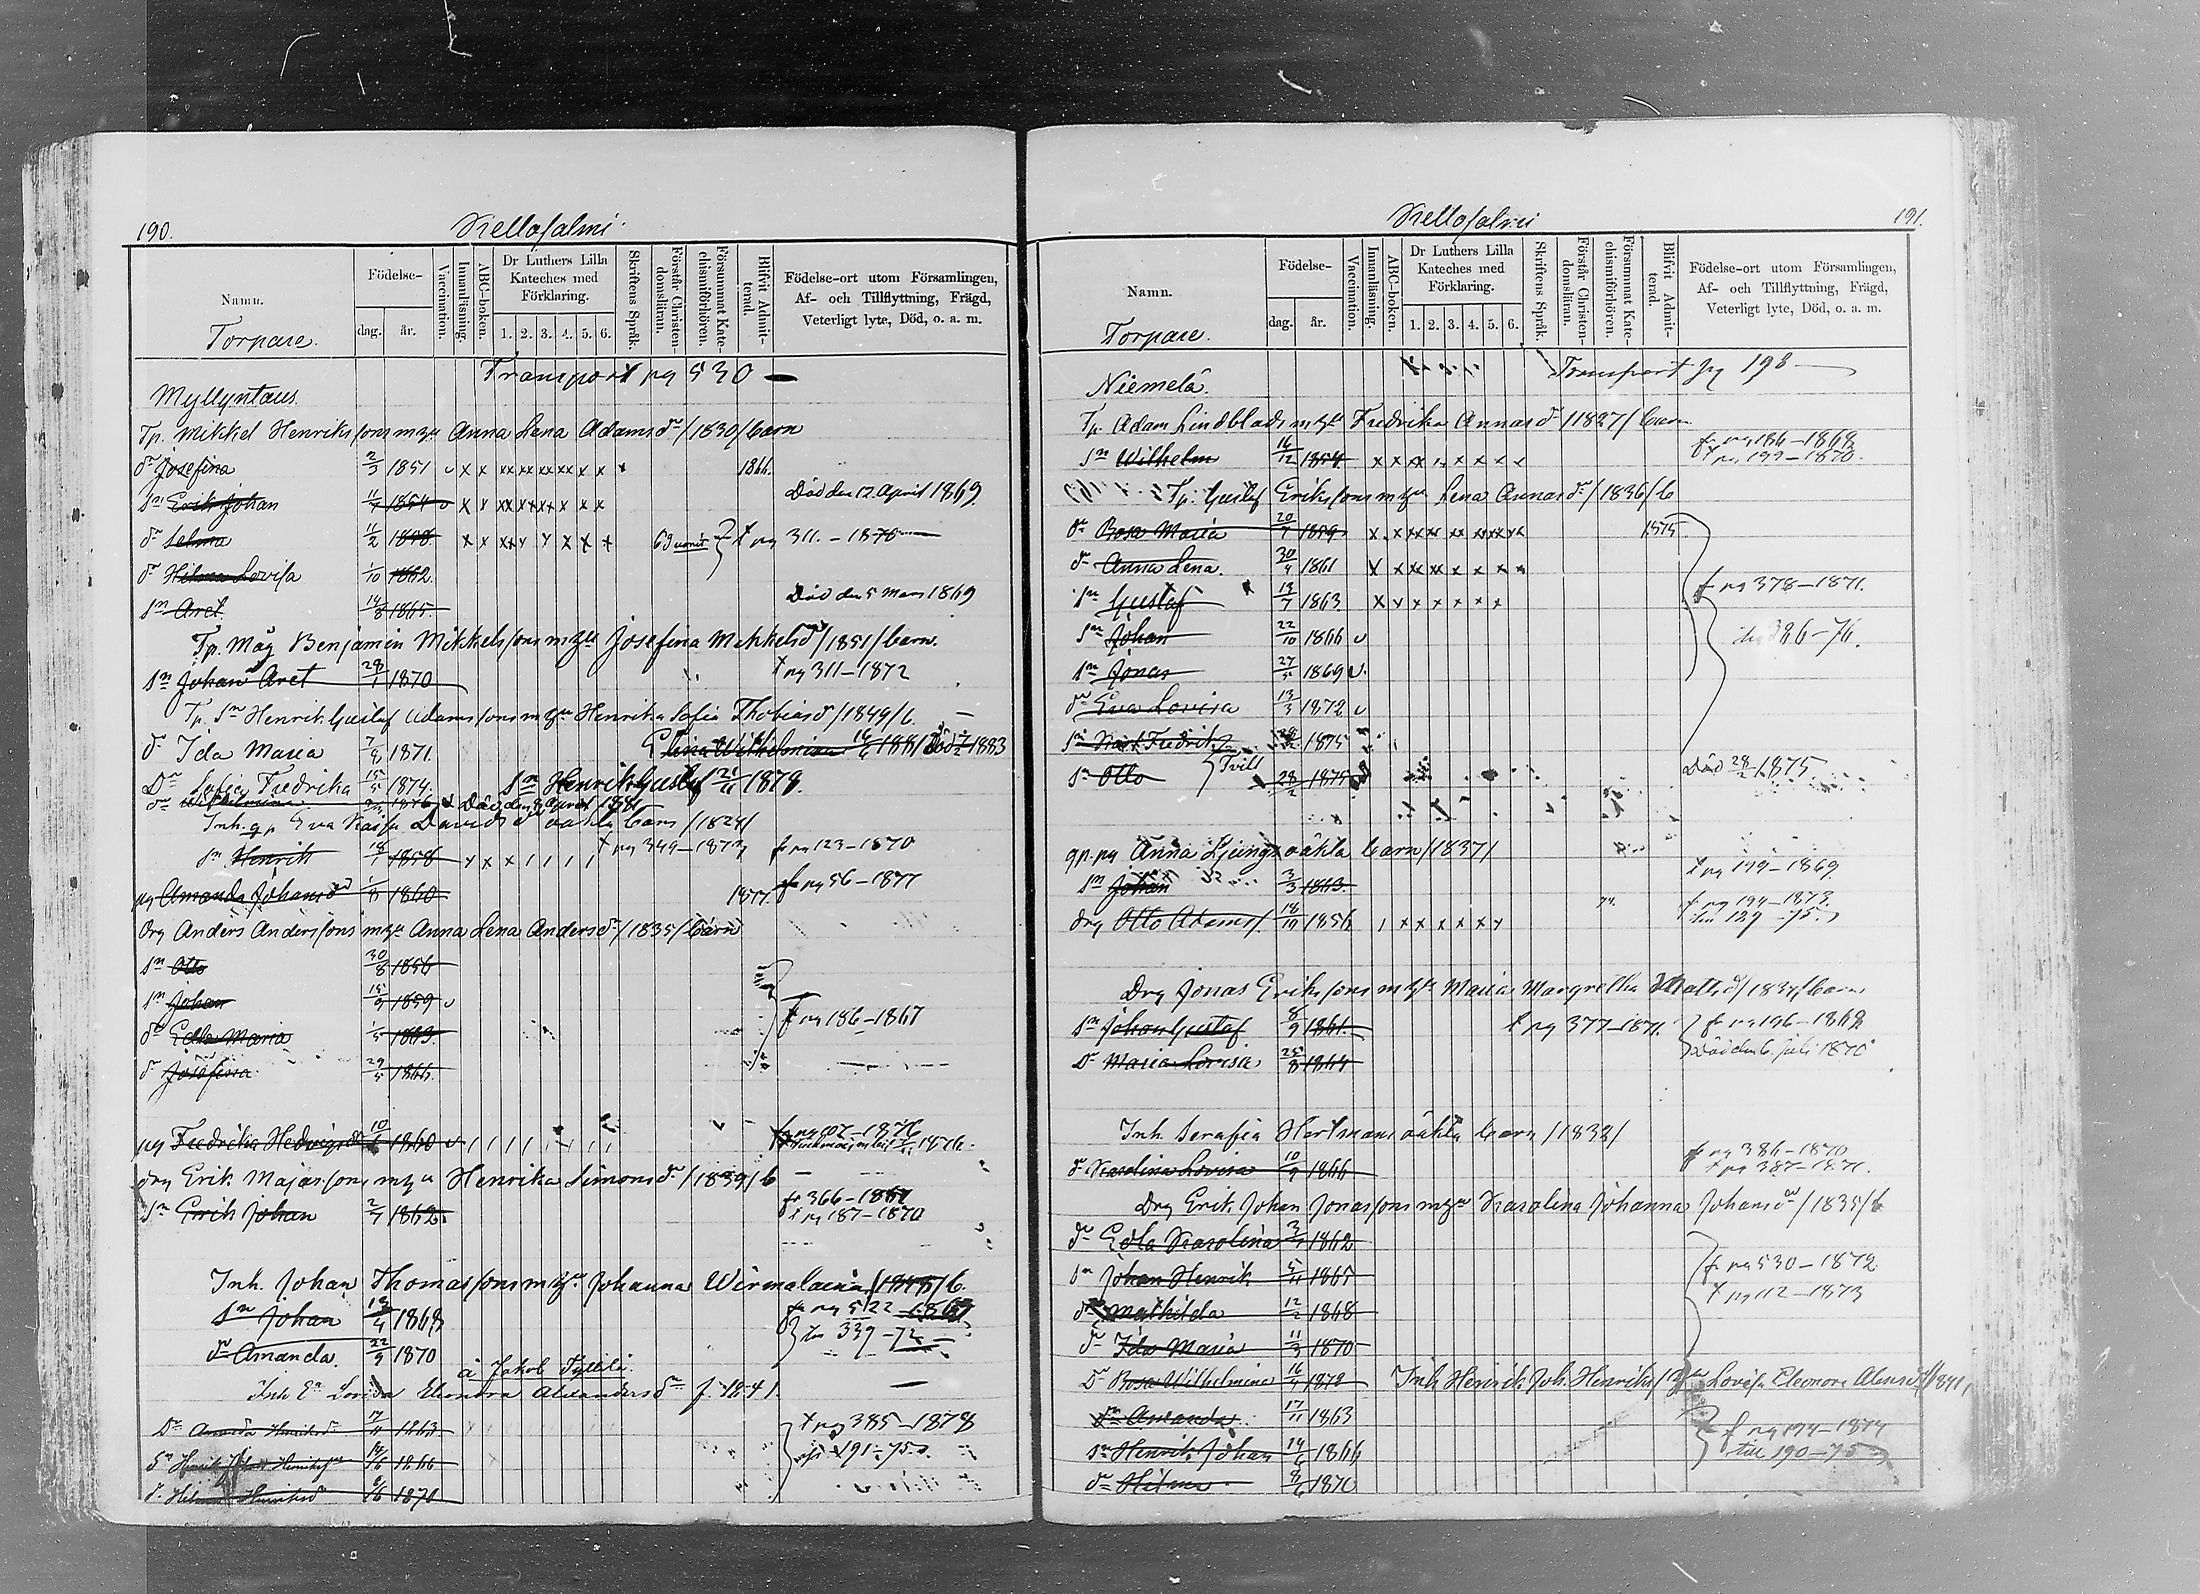 190.
Kellosalmi
Namn.
Torpare.
Födelse-
dag. år.
Vaccination.
Innanläsning.
ABC-boken.
Dr Luthers Lilla Kateches med Förklaring.
1. 2. 3. 4. 5. 6.
Skriftens Språk.
Förstår Christen-domsläran.
Försummat Kate-chismiförhören.
Blifvit Admit-terad.
Födelse-ort utom Församlingen,
Af- och Tillflyttning, Frägd,
Veterligt lyte, Död, o. a. m.
Transport pg 530
Myllyntaus.
Tp. Mikkel Henrikssons m hu Anna Lena Adamsdr /1830/ barn
dr Josefina 2/3 1851 1866.
sn Erik Johan 1854 Död den 12 April 1869
dr Selma 11/2 1858. t pg 311. - 1870
dr Hilma Lovisa 1/10 1862.
sn Aret 14/8 1865. Död den 5 Mars 1869
Tp. Måg Benjamin Mikkelssons m hu Josefina Mikkelsdr /1851/ barn.
sn Johan Aret 28/1 1870 t pg 311-1872
Tp. sn Henrik Gustaf Adamssons m hu Henrika Sofia Thobiasdr /1849/ b.
dr Ida Maria 7/8 1871. Elina Wilhelmina 1881 Död 1883
Dr Sofia Fredrika 15/5 1874. sn Henrik Gustaf 21/11 1878.
dr Wilhelmina 1876 Död den 8 April 1881
Inh. gp Eva Kaisa Davidsdr oäkta barn /1824/
sn Henrik 18/1 1858 t pg 349-1873 fr pg 123-1870
pg Amanda Johansdr 1/8 1860 1877. fr pg 56-1877
Drg Anders Anderssons m hu Anna Lena Andersdr /1835/ barn
sn Otto 30/8 1856
sn Johan 15/9 1859
dr Edla Maria 1/5 1863. t pg 186-1867
dr Josefina 29/5 1866.
pg Fredrika Hedvig 10/6 1860 fr pg 107-1876
1876.
drg Erik Majassons m hu Henrika Simonsdr /1839/ b
sn Erik Johan 2/7 1862. fr 366-1869
t pg 187-1870
Inh. Johan Thomassons m hu Johanna Wirmalainen b.
sn Johan 1868 fr pg 522 1869
dr Amanda. 22/9 1870 till 339-72
à Jakob Tyllilä.
Inh En Lovisa Eleonora Alexandersdr f. 1841.
Dr Amanda Henriksdr 17/11 1863 t pg 385-1878
Sn Henrik Johan Henriksson 14/6 1866 ifr. 191-75.
dr Hilma Henriksdr 8/6 1870
191.
Kellosalmi
Namn.
Torpare.
Födelse-
dag. år.
Vaccination.
Innanläsning.
ABC-boken.
Dr Luthers Lilla Kateches med Förklaring.
1. 2. 3. 4. 5. 6.
Skriftens Språk.
Förstår Christen-domsläran.
Försummat Kate-chismiförhören.
Blifvit Admit-terad.
Födelse-ort utom Församlingen,
Af- och Tillflyttning, Frägd,
Veterligt lyte, Död, o. a. m.
Transport pg 198
Niemelä.
Tp. Adam Lindblads m hu Fredrika Annasdr /1827/ barn
sn Wilhelm 16/12 1854 fr pg 186-1868
t pg 199-1870.
Tp. Gustaf Erikssons m hu Lena Annasdr /1836/ b
dr Rosa Maria 20/7 1859 1875
dr Anna Lena. 30/4 1861
sn Gustaf 13/7 1863 fr pg 378-1871.
sn Johan 22/10 1866 386-76.
sn Jonas 27/5 1869
dr Eva Lovisa 13/3 1872
sn Karl Fredrik 28/2 1875
sn Otto Tvill 28/2 1875 Död 28/2 1875
gp. pg Anna Ljungs oäkta barn /1837/
sn Johan 3/3 1863. t pg 179-1869
drg Otto Adams. 18/10 1856 fr pg 194-1873.
till 129-75.
Drg Jonas Erikssons m hu Maria Margretha Mattsdr /1834/ barn
sn Johan Gustaf 8/9 1861. t pg 377-1871. fr pg 196-1868
Dr Maria Lovisa 25/8 1864 Död den 6. Juli 1870
Inh. Serafia Hartmans oäkta barn /1832/
dr Karolina Lovisa 10/9 1866 fr pg 386-1870
t pg 387-1871.
Drg Erik Johan Jonassons m hu Karolina Johanna Johansdr /1835/ b
dr Edla Karolina 1862
sn Johan Henrik 5/11 1865 fr pg 530-1872.
dr Mathilda 12/2 1868 t pg 112-1873
dr Ida Maria 11/3 1870
Dr Rosa Wilhelmina 1872 Inh Henrik Joh. Henriks hu Lovisa Eleonora Alexsdr /1841/
dr Amanda. 17/11 1863
sn Henrik Johan 14/6 1866 fr pg 194-1874
dr Hilma 8/6 1870 till 190-75